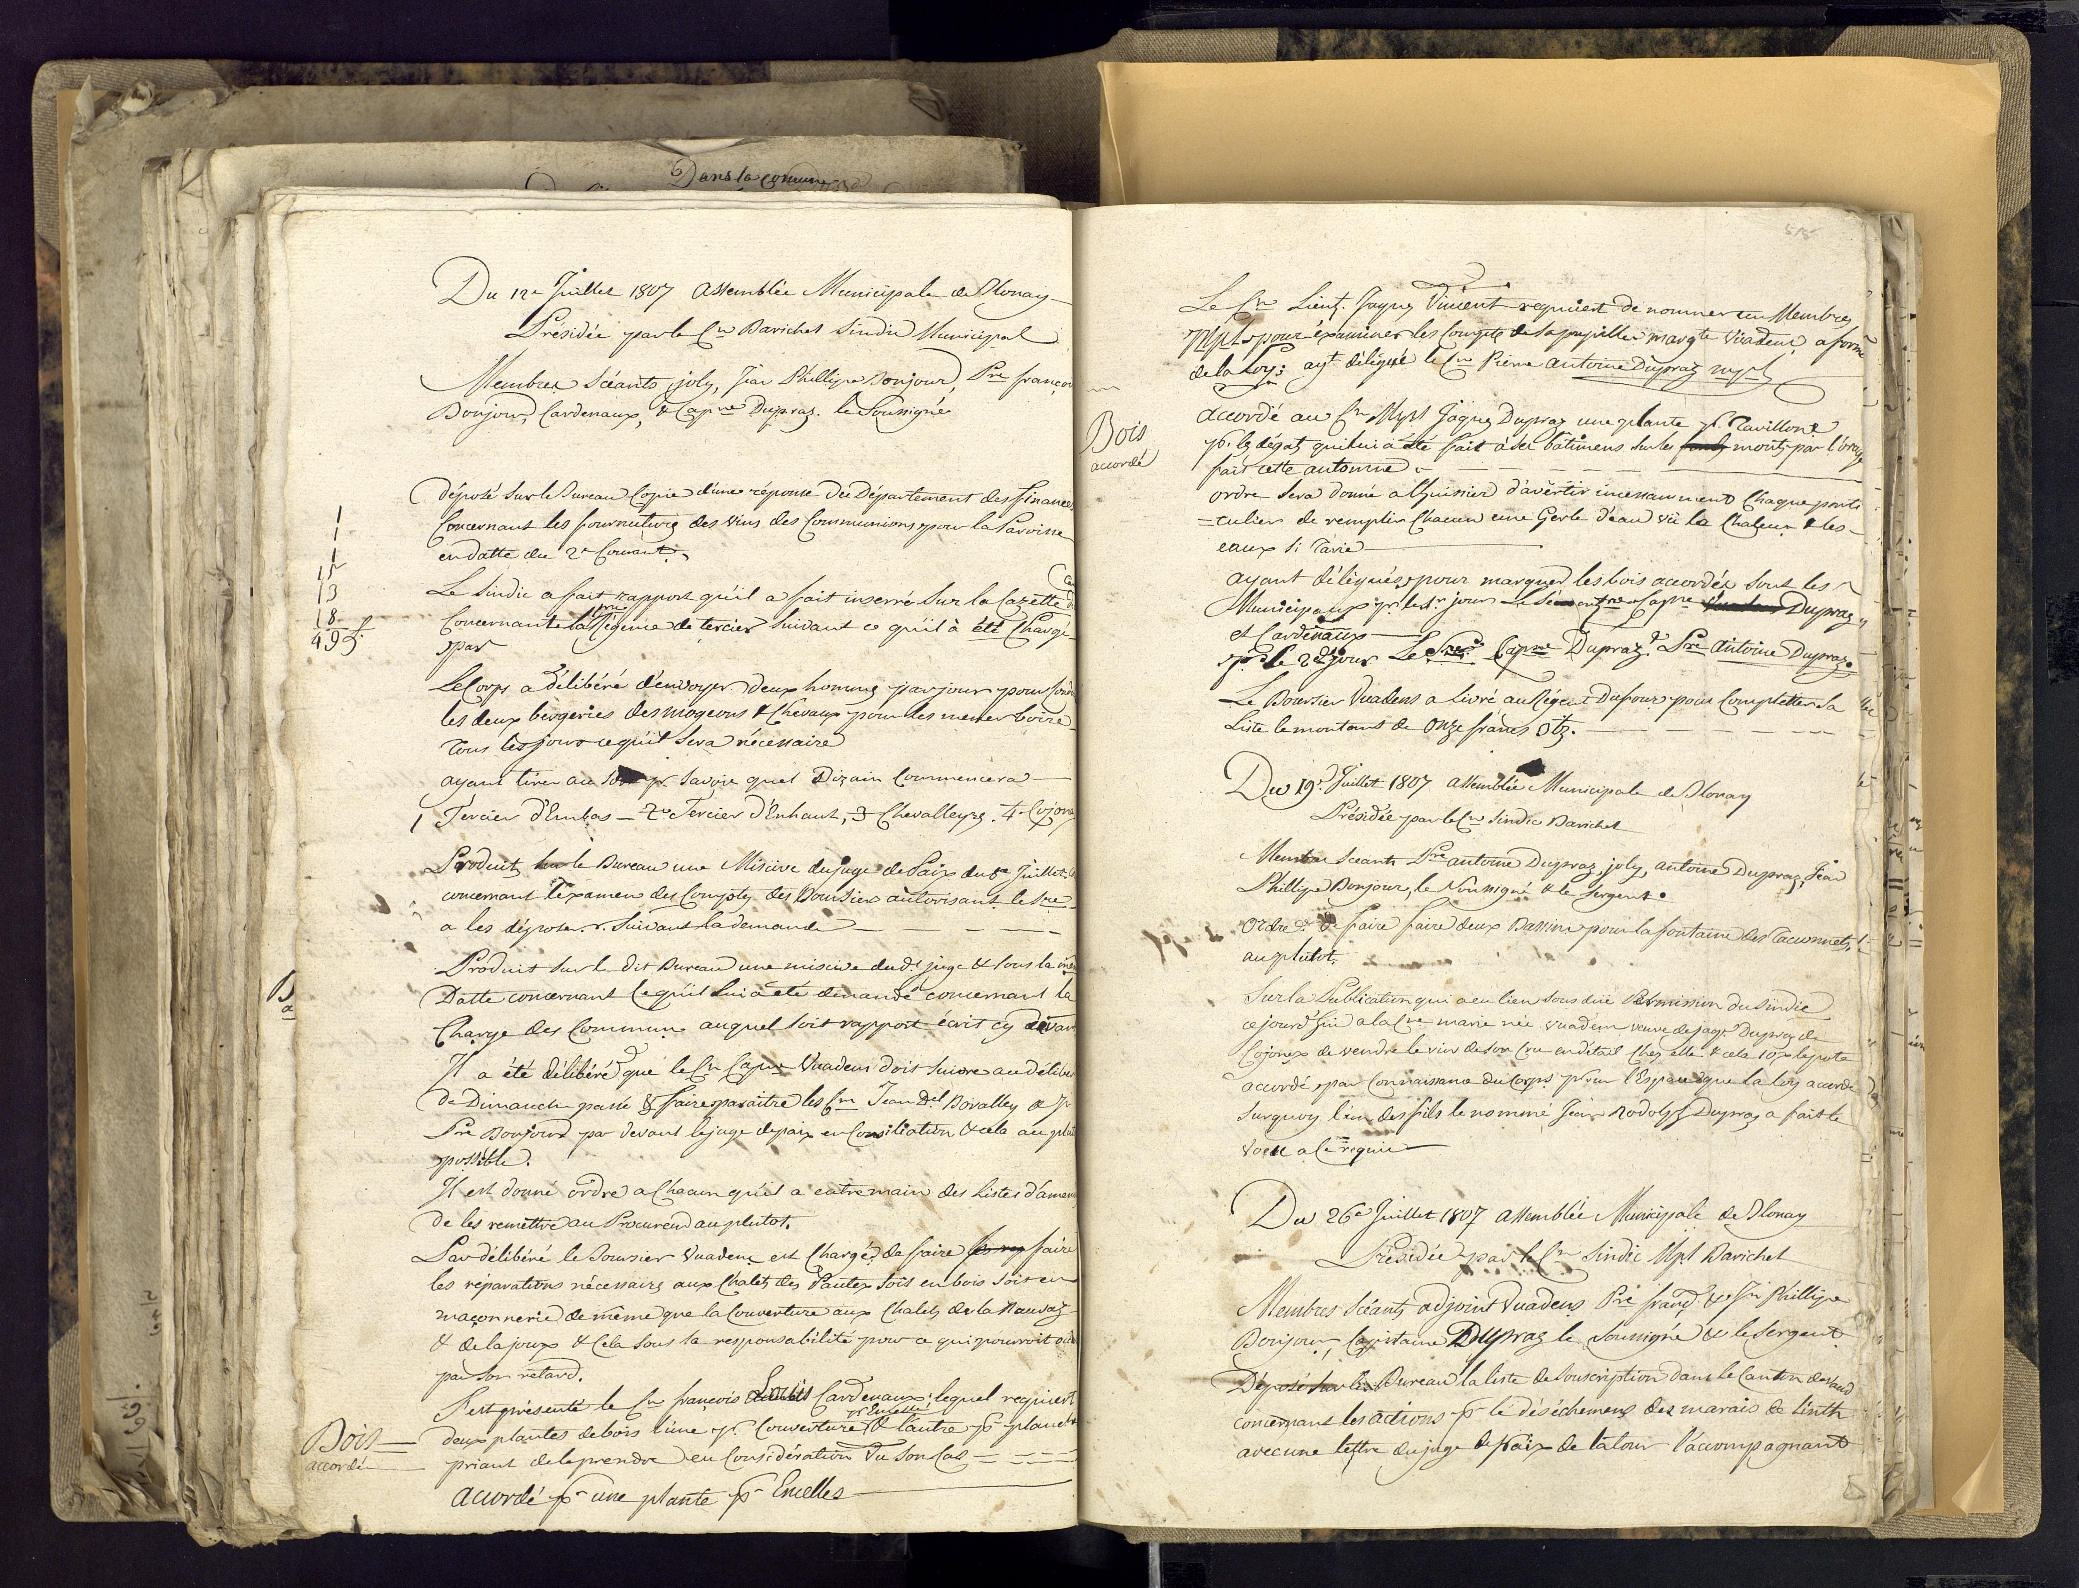 Dans la comune
Du 12e Juillet 1807 Assemblée Municipale de Blonay
Présidée par le Cn Barichet Sindic Municipal
Membres Séants, joly, Jean Phillipe Bonjour, Pre françoi
Bonjour, Cardenaux, & Capne Dupraz. le Soussigné
déposé sur le Bureau Copie d'une réponse du Département des finances
Concernant les fournitures des vins des Communions pour la Paroisse
en datte du 2e Courant.
1
1
15
13
18
495
Le Sindic a fait rapport qu'il a fait inserré sur la Gazette
Concernante la Régence de tercier suivant ce qu'il à été Chargé
par
Le Corps a délibéré d'envoyer deux hommes par jour pour
les deux bergeries des mogeons & Chevaux pour les mener boire
tous les jours ce qu'il sera nécessaire
ayant tirer au Sort pr savoir quel Dizain Commencera
1 Tercier d'Embas - 2e Tercier d'Enhaut, 3 Chevalleyres. 4e Cojonex
Produit sur le Bureau une Missive du juge de Paix du Juillet
concernant l'examen des Comptes des Boursiers autorisant le Sre
a les déposer. Suivant la demande
Produit sur le dit Bureau une missive du dt juge & sous la
Datte concernant ce qu'il lui a été demandé concernant la
Charge des Commun auquel soit rapport écrit cy devan
Il a été délibéré que le Cn Capne Vuadens doit suivre au délibé
de Dimanche passé & faire paraitre les Cns Jean Del Bovalley &
Pre Bonjour par devant le juge de paix en Consiliation & cela au plu
possible.
Il est donné ordre a Chacun qu'il a entre main des Listes d'amen
de les remettre au Procureur au plutot.
Par délibéré le Boursier Vuadens est Chargé de faire faire
les réparations nécessaires aux Chalets des Pautex soit en bois soit en
maçonnerie de même que la Couverture aux Chalets de la
& de la joux & cela sous sa responsabilité pour ce qui pourroit
par son retard.
S'est présenté le Cn françois Louis Cardenaux lequel requiert
pr Encelle
deux plantes de bois l'une pr. Couverture & l'autre pr planche
Bois
accordé
priant de le prendre en Considération Vu son Cas
accordé pr une plante pr Encelles
Le Cn Lieut. Jaques Vincent requiert de nommer un Membres
Mpls pour éxaminer les Compte de sa pupille margte Vuadens, a forme
de la Loy; ayt délégué le Cn Pierre antoine Dupraz mpl
Bois
accordé
accordé au Cn Mpl Jaques Dupraz une plante pr. Tavillons
pr. les dégats qui lui a été fait à ses batimens sur les monts par l'orage
fait cette automne
ordre sera donné a l'huissier d'avertir incessamment Chaque parti
=culier de remplir Chacun une Gerle d'eau vû la Chaleur & les
eaux si Tarie
ayant délégués pour marquer les bois accordés sont les
Municipaux pr le 1r jour Capne Dupraz
et Cardenaux
pr. le 2d jour Le Sre Capne Dupraz & Pre Antoine Dupraz.
Le Boursier Vuadens a livré au Régent Dufour pour Completter sa
Liste le montant de Onze francs 0 bz.
Du 19e Juillet 1807 assemblée Municipale de Blonay
Présidée par le Cn Sindic Barichet
Membres Scéants Pre antoine Dupraz, joly, antoine Dupraz, Jean
Phillipe Bonjour, le Soussigné & le Sergent.
Ordre de faire faire deux Bassins pour la fontaine des
au plutot.
Sur la Publication qui a eu lieu sous due Permission du Sindic
ce jourd'hui a la Cne marie née Vuadens veuve de Jaqs Dupraz de
Cojonex de vendre le vin de son Cru en détail Chez elle & cela 10x le pote
accordé par Connaissance du Corps pour l'Espace que la loy accorde
Surquoy l'un des fils le nommé Jean Rodolph Dupraz a fait le
voeu a ce requis
Du 26e Juillet 1807 assemblée Municipale de Blonay
Présidée par le Cn Sindic Mpl Barichet
Membres Scéants, adjoint Vuadens Pre franc. & Jn Phillipe
Bonjour, Capitaine Dupraz le Soussigné & le Sergent
Déposé sur le Bureau la liste de Souscription dans le Canton de vaud
concernant les actions pr le déséchement des marais de Linth
avec une lettre du juge de paix de la tour l'accompagnant